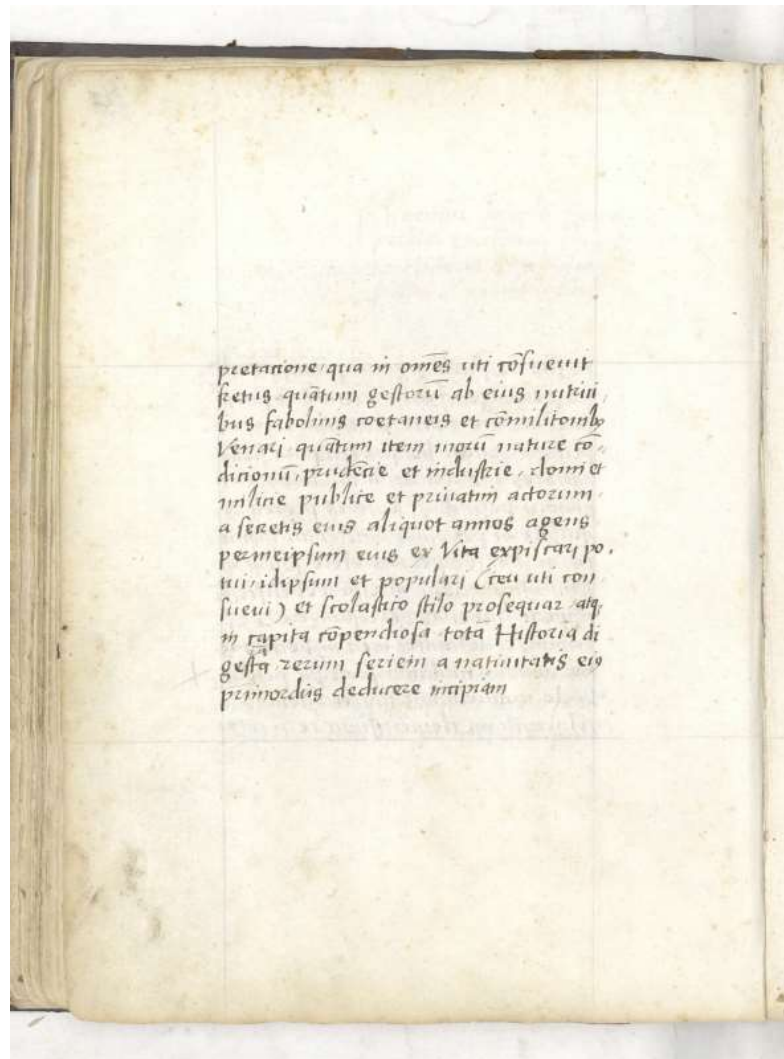 pretacione qua in om̄es uti cōsuevit
fretus quātum gestorū ab eius nutrici,
bus fabolinis coetaneis et cōmilitonibꝫ
Venari quātum item morū nature cō,
dicionū, prudēcie et industrie, domi et
milicie publice et priuatim actorum
a secretis eius aliquot annos agens
permeipsum eius ex Vita expiscari po,
tui, idipsum et populari (ceu uti con
suevi) et scolastico stilo prosequar atqꝫ
in capita cōpendiosa totā Historia di
gestā rerum seriem a natiuitatis eiꝰ
primordiis deducere incipiam